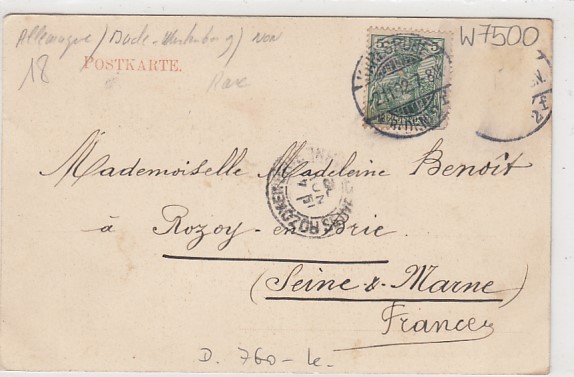 Allemagne / Bade-Wurtemberg / 
W7500
18
POSTKARTE.
Rare
Mademoiselle Madeleine Benoît
à Rozoy-en-Brie
(Seine & Marne)
France
D. 760 -